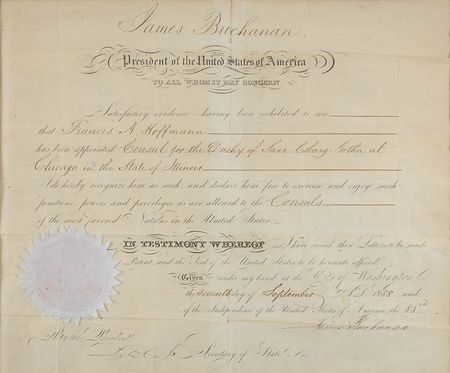 James Buchanan,
President of the United States of America
TO ALL WHOM IT MAY CONCERN
Satisfactory evidence having been exhibited to me
that Francis A Hoffmann
has been appointed Consul for the Duchy of Saxe Coburg Gotha at
Chicago in the State of Illinois
I do hereby recognize him as such, and declare him free to exercise and enjoy such
functions, powers and privileges as are allowed to the Consuls
of the most favored Nations in the United States.
IN TESTIMONY WHEREOF I have caused these Letters to be made
Patent, and the Seal of the United States to be hereunto affixed.
Given under my hand at the City of Washington
the seventh day of September A.D. 1858 and
of the Independence of the United States of America, the 83rd
James Buchanan
By the President
Secretary of State